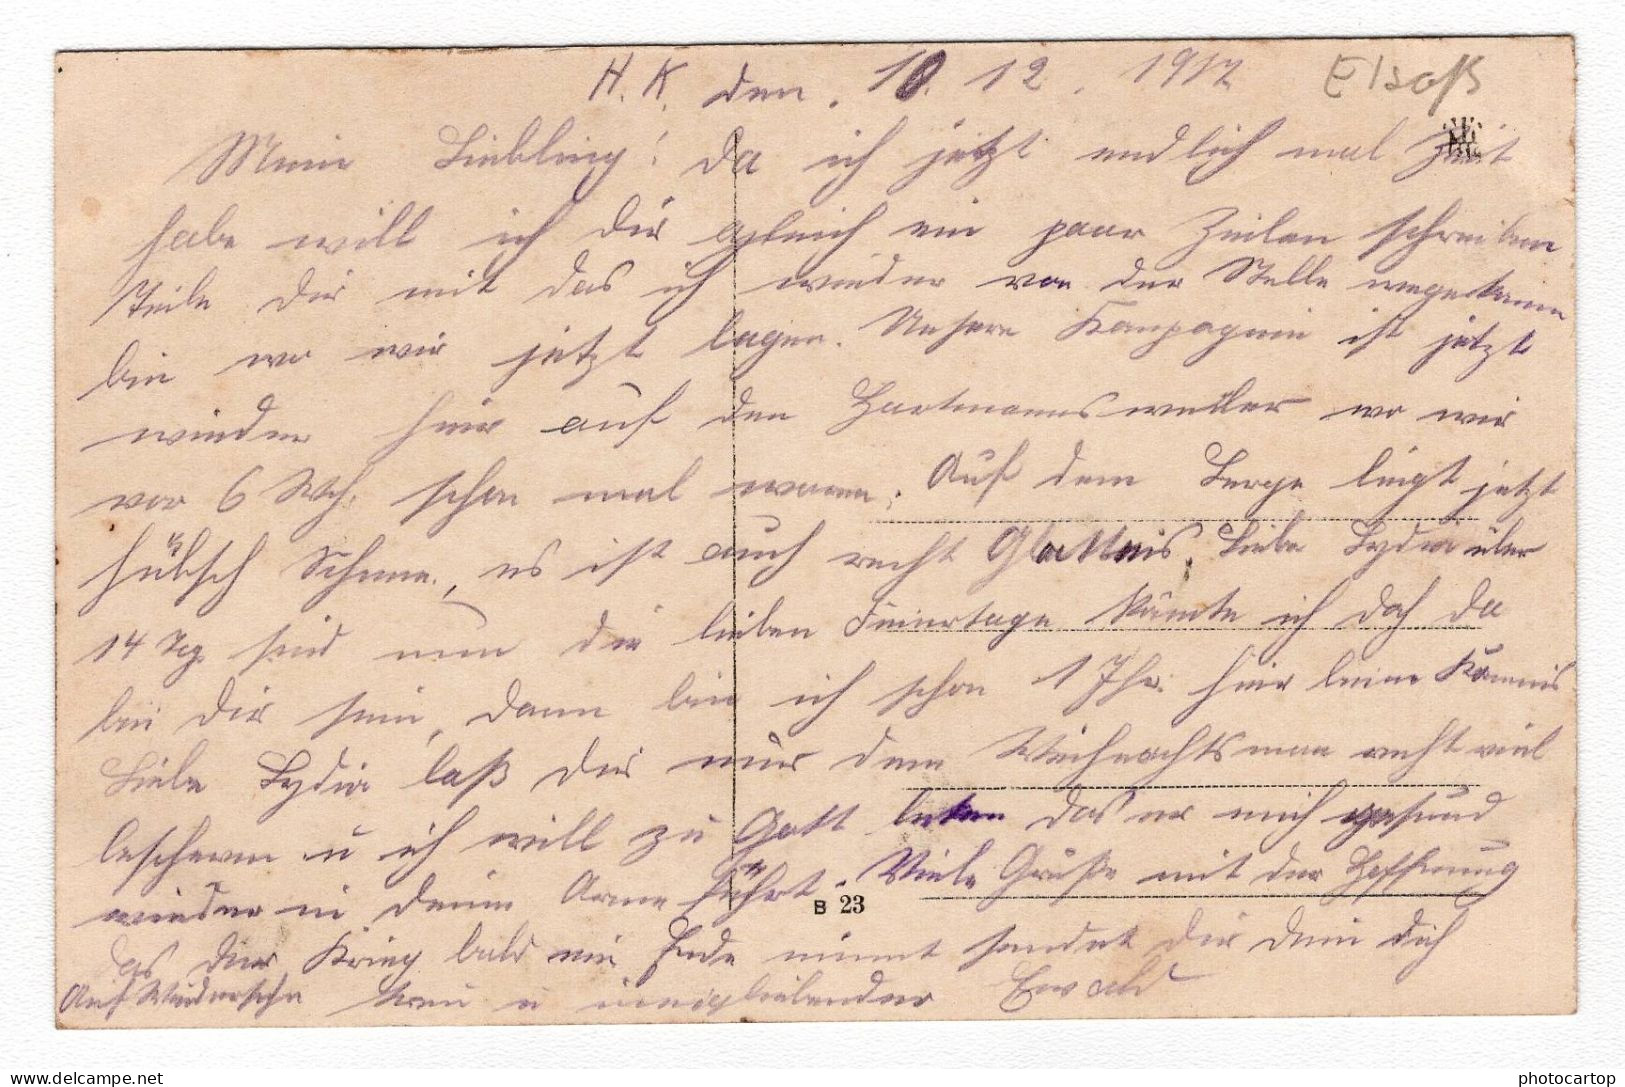 H. K. den. 10. 12. 1917 Elsaß
Mein Liebling! Da ich jetzt endlich mal Zeit
habe will ich Dir gleich ein paar Zeilen schreiben
Teile Dir mit das ich wieder von der Stelle weggekommen
bin wo wir jetzt lagen. Unsere Kompagnie ist jetzt
wieder hier auf den Hartmannsweiller wo wir
vor 6 Wch. schon mal waren. Auf dem Berge liegt jetzt
hübsch Schnee, es ist auch recht Glatteis. Liebe Lydia über
14 Tg. sind nun die lieben Feiertage könnte ich doch da
bei Dir sein, dann bin ich schon 1 Jhr. hier beim
Liebe Lydia laß Dir nur dem Weihnachtsman recht viel
bescheren u ich will zu Gott beten das er mich gesund
wieder in deine Arme führt. Viele Grüße mit der Hoffnung
B 23
das der Krieg bald ein Ende nimmt sendet Dir dein dich
Auf Wiedersehn treu u innigliebender Ewald
photocartop
www.delcampe.net